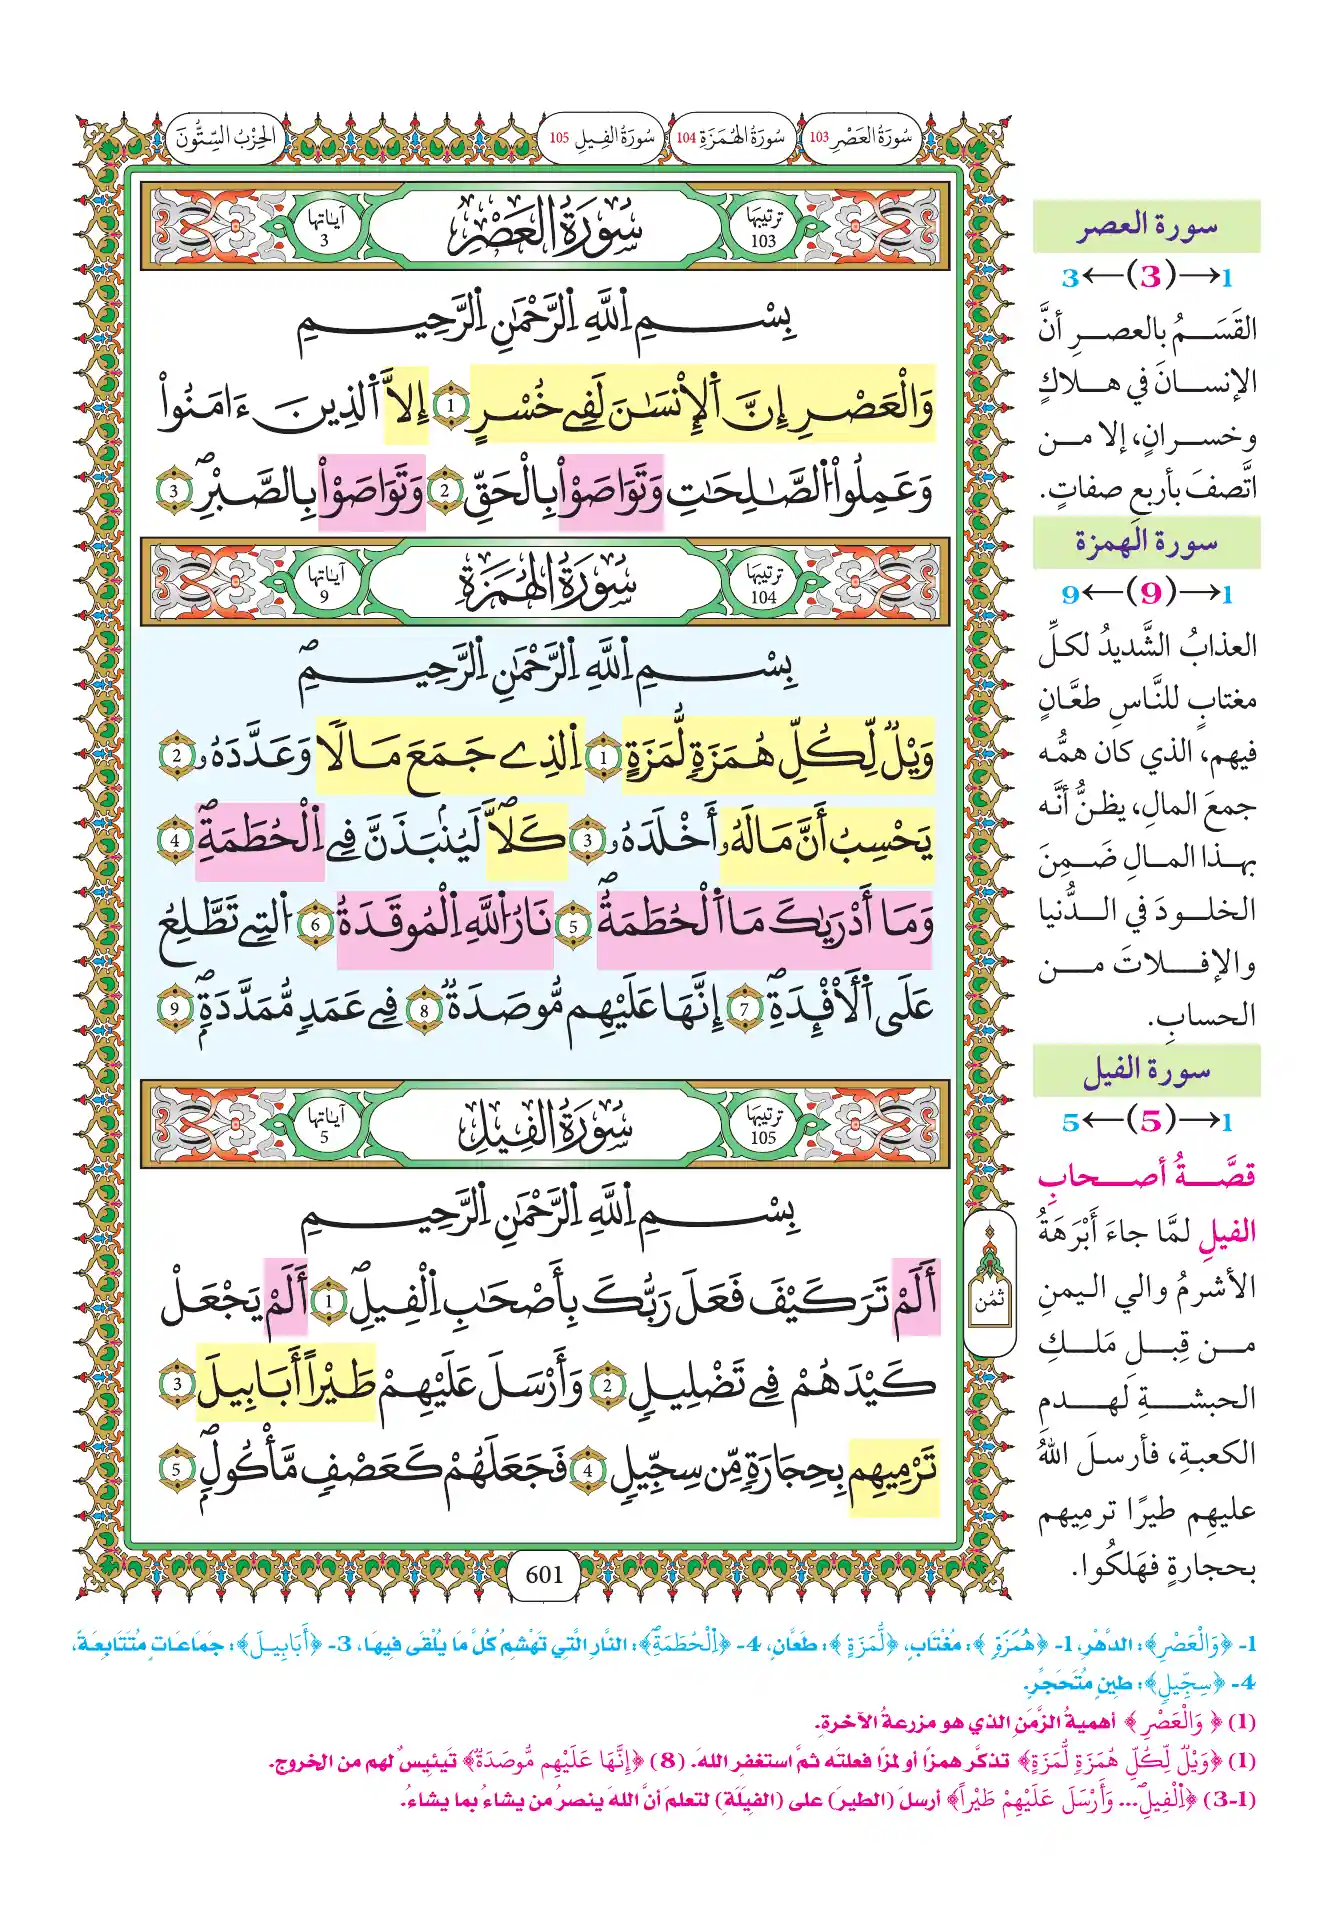 سُورَةُ العَصْرِ 103
سُورَةُ الهُمَزَةِ 104
سُورَةُ الفِيلِ 105
الحِزْبُ السِّتُّونَ
ترتيبها 103
سُورَةُ العَصْرِ
آياتها 3
بِسْمِ اِ۬للَّهِ اِ۬لرَّحْمَٰنِ اِ۬لرَّحِيمِ
وَالْعَصْرِ إِنَّ اَ۬لْإِنسَٰنَ لَفِے خُسْرٍ 1 إِلَّا اَ۬لذِينَ ءَامَنُواْ
وَعَمِلُواْ اُ۬لصَّٰلِحَٰتِ وَتَوَاصَوْاْ بِالْحَقِّ 2 وَتَوَاصَوْاْ بِالصَّبْرِ 3
ترتيبها 104
سُورَةُ الهُمَزَةِ
آياتها 9
بِسْمِ اِ۬للَّهِ اِ۬لرَّحْمَٰنِ اِ۬لرَّحِيمِ
وَيْلٌ لِّكُلِّ هُمَزَةٍ لُّمَزَةٍ 1 اِ۬لذِے جَمَعَ مَالًا وَعَدَّدَهُۥ 2
يَحْسِبُ أَنَّ مَالَهُۥ أَخْلَدَهُۥ 3 كَلَّا لَيُنۢبَذَنَّ فِے اِ۬لْحُطَمَةِ 4
وَمَا أَدْرَىٰكَ مَا اَ۬لْحُطَمَةُ 5 نَارُ اُ۬للَّهِ اِ۬لْمُوقَدَةُ 6 اُ۬لتِے تَطَّلِعُ
عَلَى اَ۬لْأَفْـِٕدَةِ 7 إِنَّهَا عَلَيْهِم مُّوصَدَةٌ 8 فِے عَمَدٍ مُّمَدَّدَةٍ 9
ترتيبها 105
سُورَةُ الفِيلِ
آياتها 5
بِسْمِ اِ۬للَّهِ اِ۬لرَّحْمَٰنِ اِ۬لرَّحِيمِ
أَلَمْ تَرَ كَيْفَ فَعَلَ رَبُّكَ بِأَصْحَٰبِ اِ۬لْفِيلِ 1 أَلَمْ يَجْعَلْ
كَيْدَهُمْ فِے تَضْلِيلٍ 2 وَأَرْسَلَ عَلَيْهِمْ طَيْراً أَبَابِيلَ 3
تَرْمِيهِم بِحِجَارَةٍ مِّن سِجِّيلٍ 4 فَجَعَلَهُمْ كَعَصْفٍ مَّأْكُولٍ 5
ثُمُن
601
سورة العصر
1→(3)←3
القَسَمُ بالعصرِ أنَّ
الإنسانَ في هلاكٍ
وخسرانٍ، إلا من
اتَّصفَ بأربعِ صفاتٍ.
سورة الهمزة
1→(9)←9
العذابُ الشَّديدُ لكلِّ
مغتابٍ للنَّاسِ طعَّانٍ
فيهم، الذي كان همُّه
جمعَ المالِ، يظنُّ أنَّه
بهذا المالِ ضَمِنَ
الخلودَ في الدُّنيا
والإفلاتَ من
الحسابِ.
سورة الفيل
1→(5)←5
قصَّةُ أصحابِ
الفيلِ لمَّا جاءَ أَبْرَهَةُ
الأشرمُ والي اليمنِ
من قِبلِ مَلكِ
الحبشةِ لهدمِ
الكعبةِ، فأرسلَ اللهُ
عليهِم طيرًا ترمِيهم
بحجارةٍ فهَلكُوا.
1- ﴿وَالْعَصْرِ﴾: الدَّهْرِ، 1- ﴿هُمَزَةٍ﴾: مُغْتَابٍ، ﴿لُّمَزَةٍ﴾: طَعَّانٍ، 4- ﴿اِ۬لْحُطَمَةِ﴾: النَّارِ الَّتِي تَهْشِمُ كُلَّ مَا يُلْقَى فِيهَا، 3- ﴿أَبَابِيلَ﴾: جَمَاعَاتٍ مُتَتَابِعَةً،
4- ﴿سِجِّيلٍ﴾: طِينٍ مُتَحَجِّرٍ.
(1) ﴿وَالْعَصْرِ﴾ أهميةُ الزَّمَنِ الذي هو مزرعةُ الآخرةِ.
(1) ﴿وَيْلٌ لِّكُلِّ هُمَزَةٍ لُّمَزَةٍ﴾ تذكَّر همزًا أو لمزًا فعلتَه ثمَّ استغفرِ اللهَ. (8) ﴿إِنَّهَا عَلَيْهِم مُّوصَدَةٌ﴾ تَيئيسٌ لهم من الخروجِ.
(1-3) ﴿اِ۬لْفِيلِ... وَأَرْسَلَ عَلَيْهِمْ طَيْراً﴾ أرسلَ (الطيرَ) على (الفِيَلَةِ) لتعلمَ أنَّ اللهَ ينصرُ من يشاءُ بما يشاءُ.